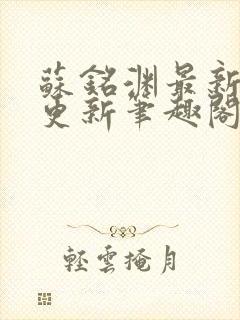 蘇銘淵最新
更新筆趣閣
輕雲掩月